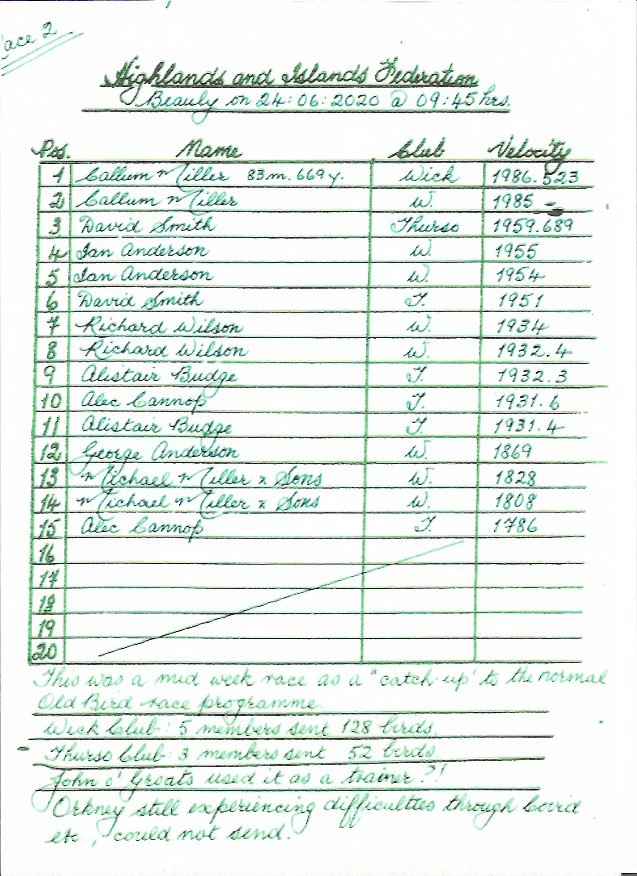 ace 2
Highlands and Islands Federation
Beauly on 24:06:2020 @ 09:45 hrs.
Pos. Name Club Velocity
1 Callum Miller 83m. 669y. Wick 1986.523
2 Callum Miller W. 1985 -
3 David Smith Thurso 1959.689
4 Ian Anderson W. 1955
5 Ian Anderson W. 1954
6 David Smith T. 1951
7 Richard Wilson W. 1934
8 Richard Wilson W. 1932.4
9 Alistair Budge T. 1932.3
10 Alec Cannop T. 1931.6
11 Alistair Budge T 1931.4
12 George Anderson W. 1869
13 Michael Miller x Sons W. 1828
14 Michael Miller x Sons W. 1808
15 Alec Cannop T. 1786
16
17
18
19
20
This was a mid week race as a "catch-up" to the normal
Old Bird race programme.
Wick Club: 5 members sent 128 birds.
- Thurso Club: 3 members sent 52 birds.
John o' Groats used it as a trainer?!
Orkney still experiencing difficulties through Covid
etc, could not send.